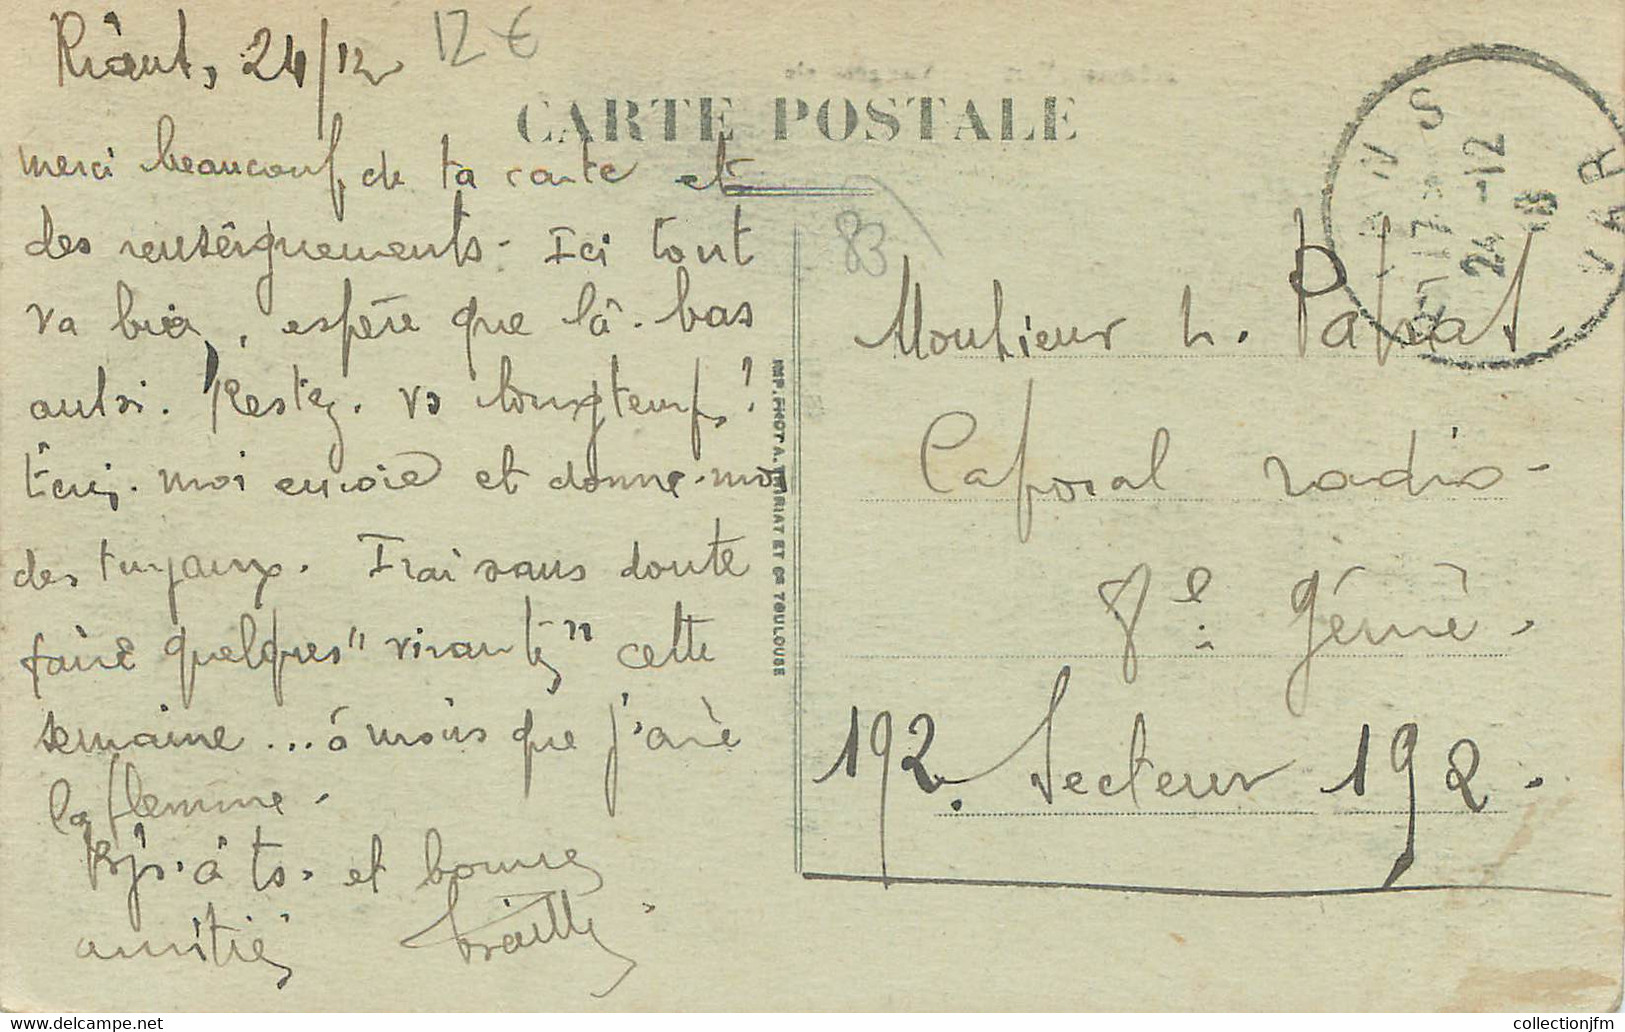 Riant, 24/12
12 €
CARTE POSTALE
RIANS
17
24 -12
18
VAR
merci beaucoup de ta carte et
des renseignements - Ici tout
va bien, espère que là-bas
aussi. Restez-vs longtemps?
Écris-moi encore et donne-moi
des tuyaux. Irai sans doute
faire quelques "virantés" cette
semaine ... à moins que j'aie
la flemme.
Bjr. à ts. et bonne
amitié
83
Monsieur L.
Caporal radio-
8e génie.
192. Secteur 192.
IMP. PHOT A. THIRIAT ET Cie TOULOUSE
collectionjfm